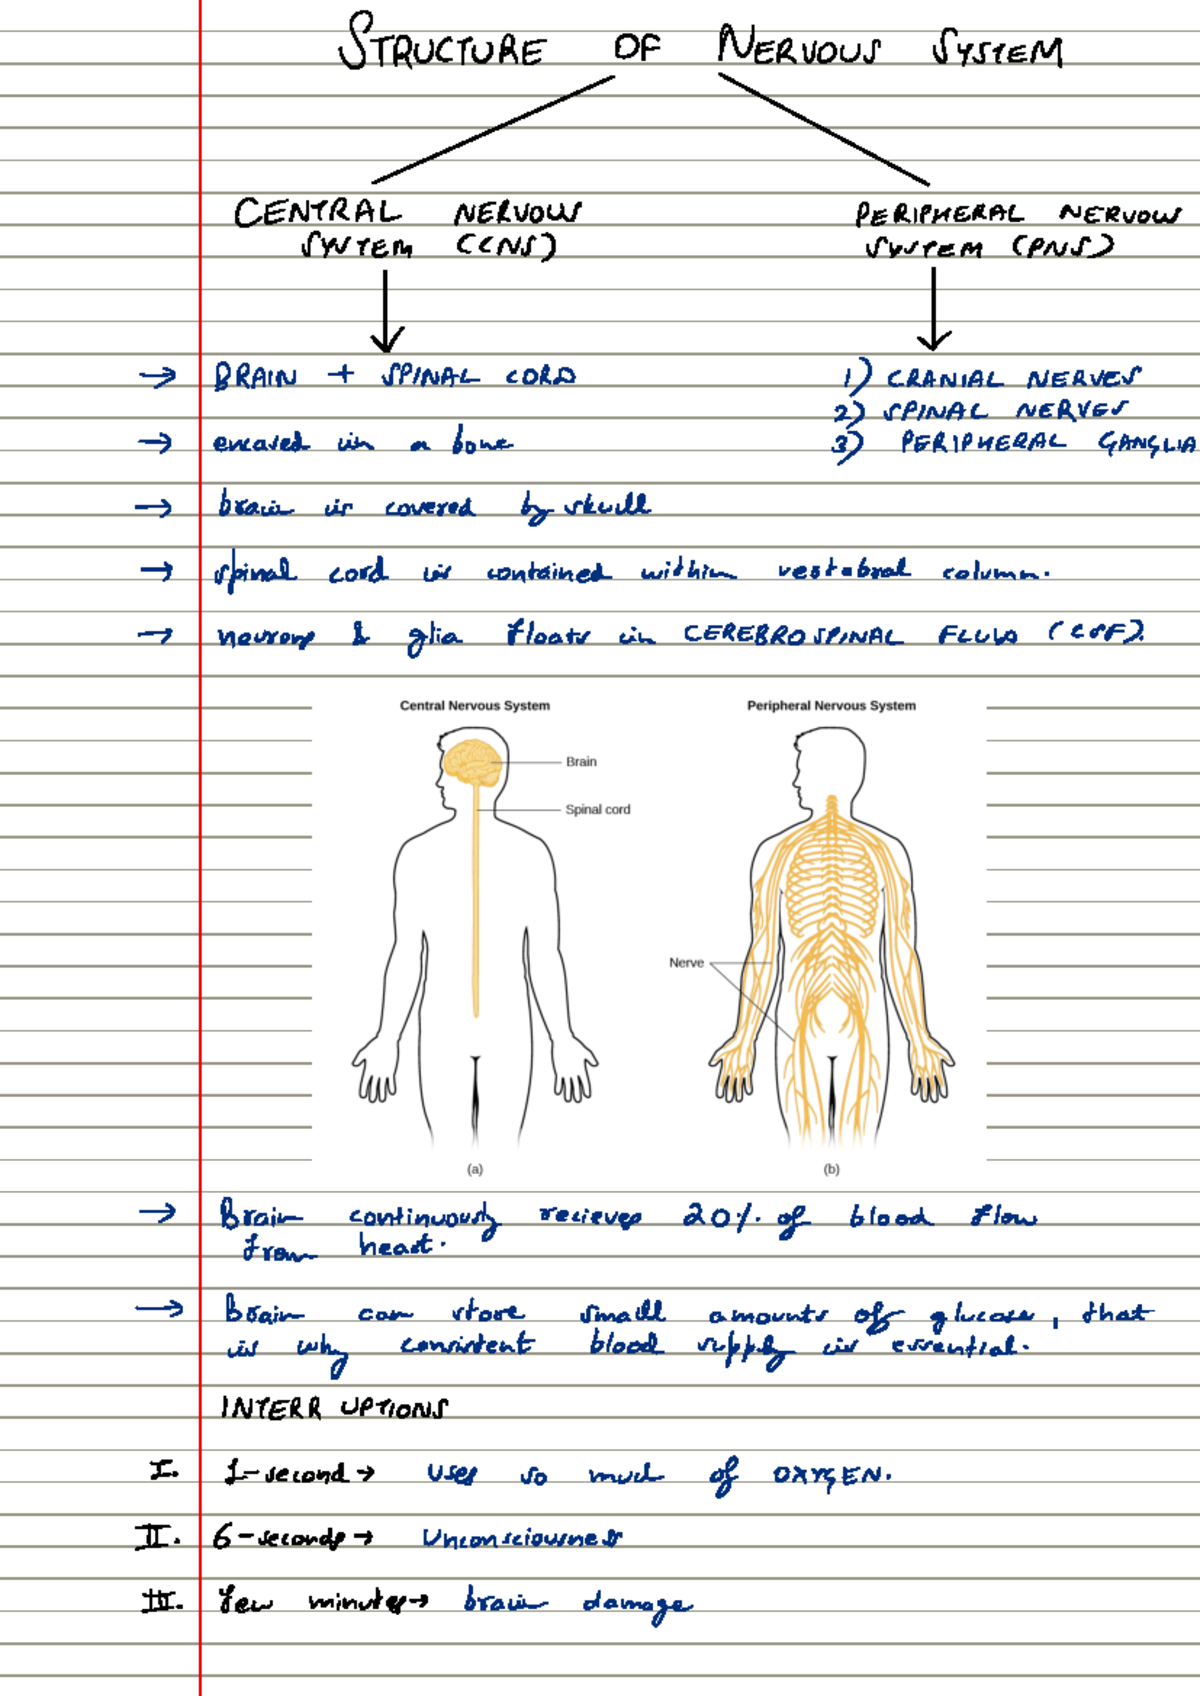 STRUCTURE OF NERVOUS SYSTEM
CENTRAL NERVOUS
SYSTEM (CNS)
PERIPHERAL NERVOUS
SYSTEM (PNS)
→ BRAIN + SPINAL CORD
1) CRANIAL NERVES
2) SPINAL NERVES
→ encased in a bone
3) PERIPHERAL GANGLIA
→ brain is covered by skull
→ spinal cord is contained within vestebral column.
→ neurons & glia floats in CEREBROSPINAL FLUID (CSF).
Central Nervous System
Peripheral Nervous System
Brain
Spinal cord
Nerve
(a)
(b)
→ Brain continuously recieves 20% of blood flow
from heart.
→ Brain can store small amounts of glucose, that
is why consistent blood supply is essential.
INTERRUPTIONS
I. 1-second → uses so much of OXYGEN.
II. 6-seconds → Unconsciousness
III. few minutes → brain damage